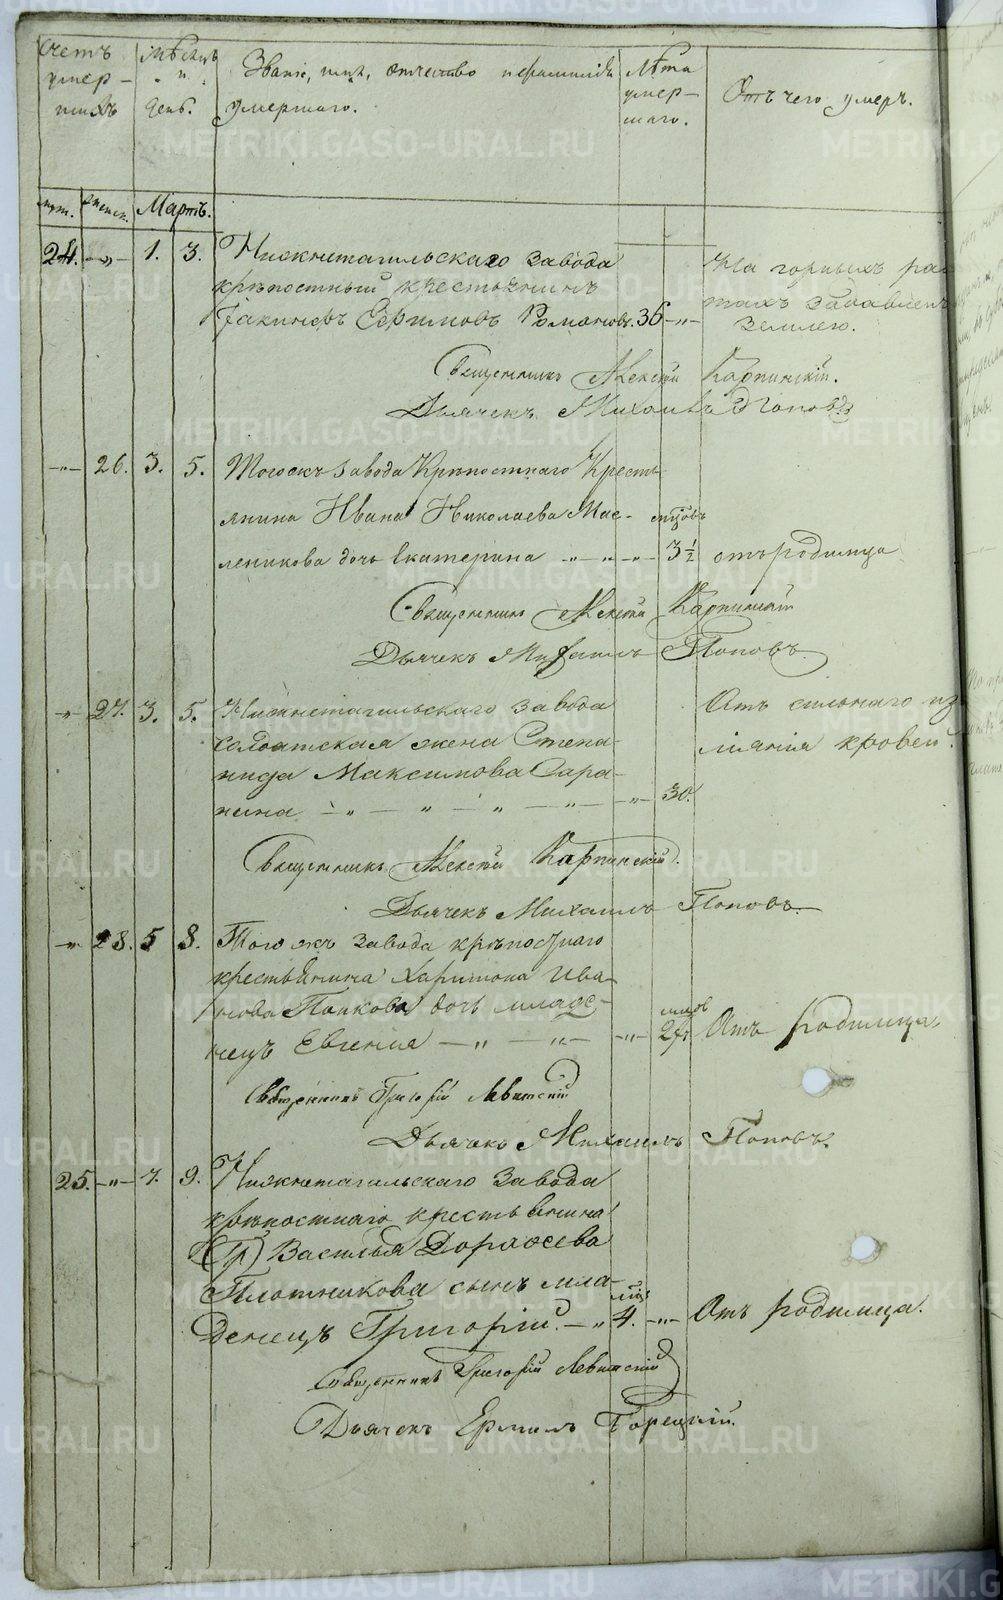 Счетъ умер- шихъ
Мѣсяцъ и день.
Званіе, имя, отчество и фамилія умершаго.
Лѣта умер- шаго.
Отъ чего умеръ.
муж. женск. Мартъ.
24. -"- 1. 3. Нижнетагильскаго завода
крѣпостный крестьянинъ
Іакинфъ Ефимовъ Романовъ. 36 -"-
На горныхъ ра
тахъ задавленъ
землею.
Священникъ Алексій Карпинскій.
Дьячекъ Михаилъ Поповъ
-"- 26. 3. 5. Тогожъ завода Крѣпостнаго Кресть
янина Ивана Николаева Мас-
леникова дочь Екатерина -"-"-"- 3 1/2 отъ родимца
Священникъ Алексій Карпинскій
Дьячекъ Михаилъ Поповъ
-"- 27. 3. 5. Нижнетагильскаго завода
солдатская жена Степа-
нида Максимова Сара-
нина -"-"-"-"- 30.
Отъ сильнаго из
ліянія кровей.
Священникъ Алексій Карпинскій.
Дьячекъ Михаилъ Поповъ.
-"- 28. 5 8. Того жъ завода крѣпостнаго
крестьянина Харитона Ива-
нова Попкова дочь младе-
нецъ Евгенія -"-"-"- Отъ родимца.
Священникъ Григорій Левитскій
Дьячекъ Михаилъ Поповъ.
25. -"- 7. 9. Нижнетагильскаго завода
крѣпостнаго крестьянина
(Гр) Василья Дорофеева
Плотникова сынъ мла-
денецъ Григорій. -"- 4. -"- Отъ родимца.
Священникъ Григорій Левитскій
Дьячекъ Ермилъ Горецкій.
METRIKI.GASO-URAL.RU